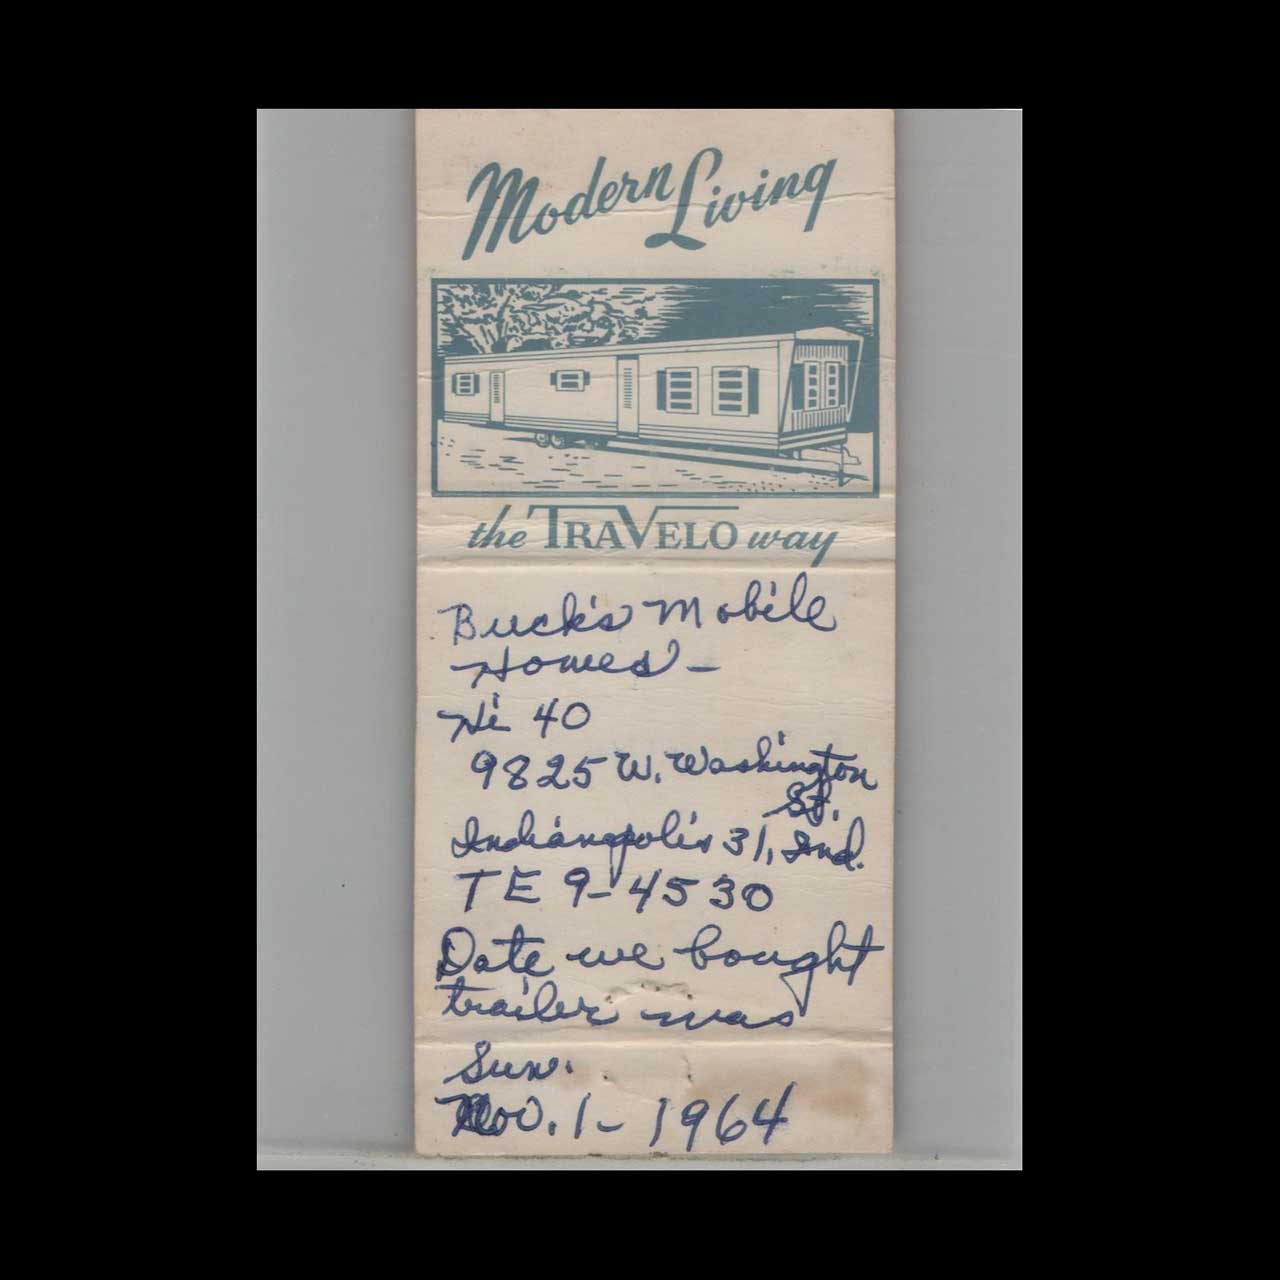 Modern Living
the TRAVELO way
Buck's Mobile
Homes -
Hi 40
9825 W. Washington
St.
Indianapolis 31, Ind.
TE 9-4530
Date we bought
trailer was
Sun.
Nov. 1 - 1964